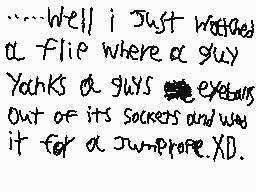 .....Well i Just watched
a flip where a guy
Yanks a guys eyeballs
out of its sockets and uses
it for a Jumprope.XD.